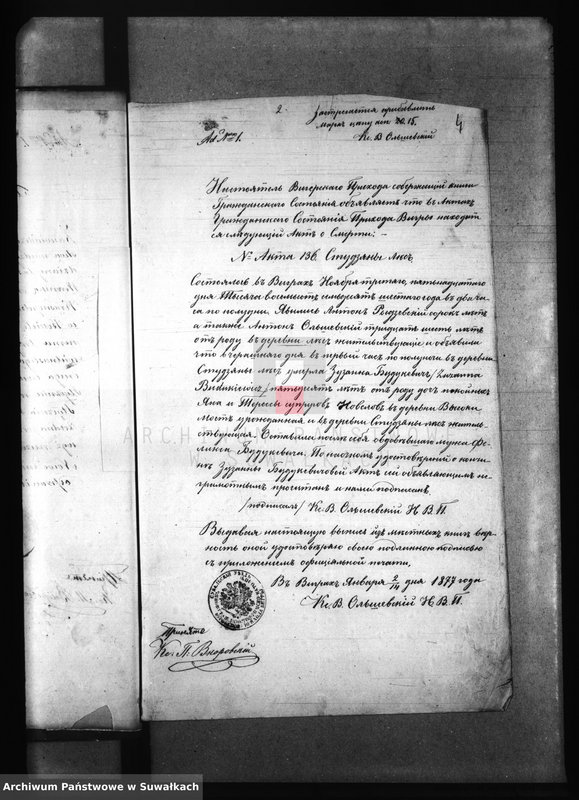 2
Застрегается прибавлять
марка цену коп 15.
Кс. В Ольшевскій
4
Ad N 1.
Настоятель Вигерскаго Прихода содержащій книги
Гражданскаго Состоянія объявляетъ что въ Актахъ
Гражданскаго Состоянія Прихода Вигры находит
ся слѣдующій Актъ о Смерти:
№ Акта 136. Студзяны лясъ.
Состоялось въ Виграхъ Ноября третьяго, пятнадцатаго
дня Тысяча восемьсотъ семьдесятъ шестаго года въ два ча
са по полудни. Явились Антонъ Рыдзевскій сорокъ лѣтъ
а также Антонъ Ольшевскій тридцать шесть лѣтъ
отъ роду въ деревни лясъ жительствующіе и объявили
что вчерашняго дня въ первый часъ по полуночи въ деревни
Студзяны лясъ умерла Зузанна Будукевичъ /Zuzanna
Budukiewicz/ пятьдесятъ лѣтъ отъ роду дочь покойныхъ
Яна и Тересы супруговъ Новеловъ въ деревни Высоки
мостъ урожденная и въ деревни Студзяны лясъ житель
ствующая. Оставила послѣ себя овдовѣвшаго мужа Фе
ликса Будукевича. По наочномъ удостовѣреніи о кончи
нѣ Зузанны Будукевичовой Актъ сей объявляющимъ не
грамотнымъ прочитанъ и нами подписанъ
/подписалъ/ Кс. В. Ольшевскій Н В. П.
Выдавая настоящую выпись изъ мѣстныхъ книгъ вѣр
ность оной удостовѣряю своею подлинною подписью
съ приложеніемъ оффиціальной печати,
Въ Виграхъ Января 2/14 дня 1877 года
Кс. В. Ольшевскій Н. В. П.
Принята
Кс. П.
Archiwum Państwowe w Suwałkach